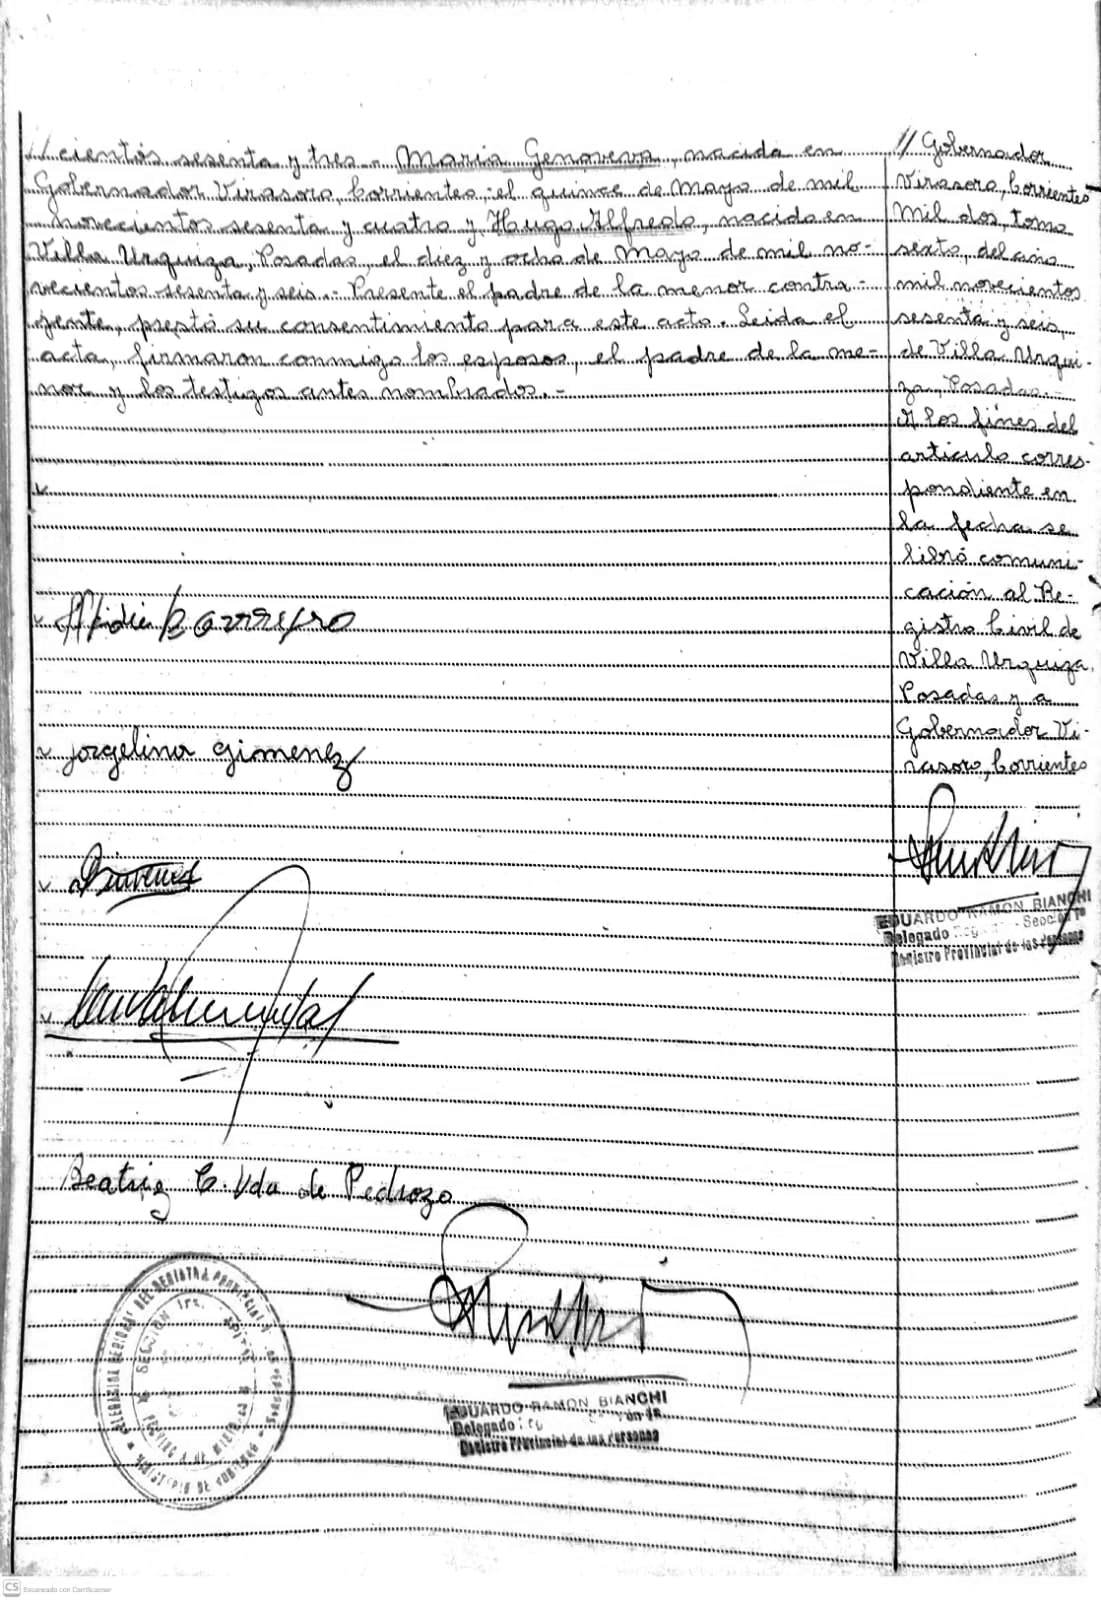 // cientos sesenta y tres.- María Genoveva, nacida en
Gobernador Virasoro, Corrientes, el quince de Mayo de mil
novecientos sesenta y cuatro y Hugo Alfredo, nacido en
Villa Urquiza, Posadas, el diez y ocho de Mayo de mil no-
vecientos sesenta y seis.- Presente el padre de la menor contra-
yente, prestó su consentimiento para este acto. Leida el
acta, firmaron conmigo los esposos, el padre de la me-
nor y los testigos antes nombrados.-
// Gobernador
Virasoro, Corrientes
Mil dos, tomo
sexto, del año
mil novecientos
sesenta y seis,
de Villa Urqui-
za, Posadas.-
A los fines del
artículo corres-
pondiente en
la fecha se
libró comuni-
cación al Re-
gistro Civil de
Villa Urquiza,
Posadas y a
Gobernador Vi-
rasoro, Corrientes
EDUARDO RAMON BIANCHI
Delegado
Registro Provincial de las Personas
Jorgelina Gimenez
Beatriz C. Vda de Pedrozo
EDUARDO RAMON BIANCHI
Delegado
Registro Provincial de las Personas
CS Escaneado con CamScanner